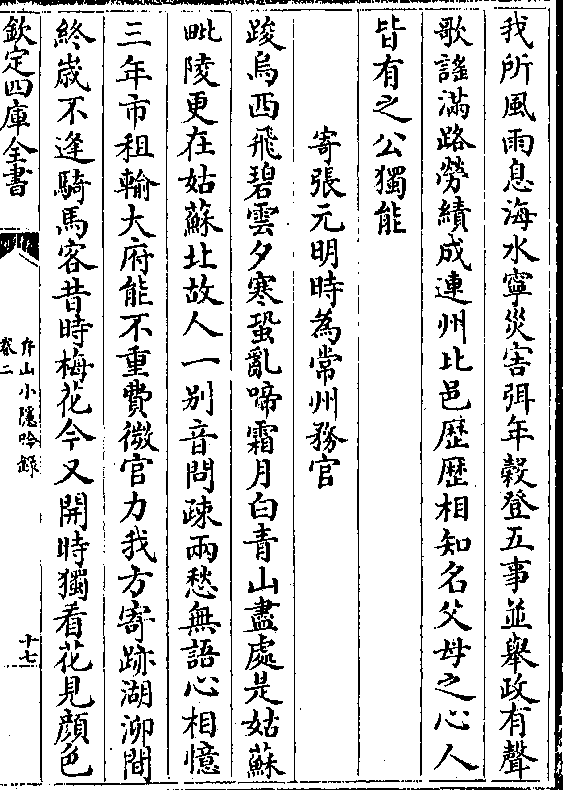 我所風雨息海水寧災害弭年穀登五事並舉政有聲
歌謠滿路勞績成連州比邑歷歷相知名父母之心人
皆有之公獨能
寄張元明時為常州務官
踆烏西飛碧雲夕寒蛩亂啼霜月白青山盡處是姑蘇
毗陵更在姑蘇北故人一别音問疎兩愁無語心相憶
三年市租輸大府能不重費微官力我方寄跡湖泖間
終嵗不逢騎馬客昔時梅花今又開時獨看花見顔色
欽定四庫全書
山小隱吟録
卷二
十七